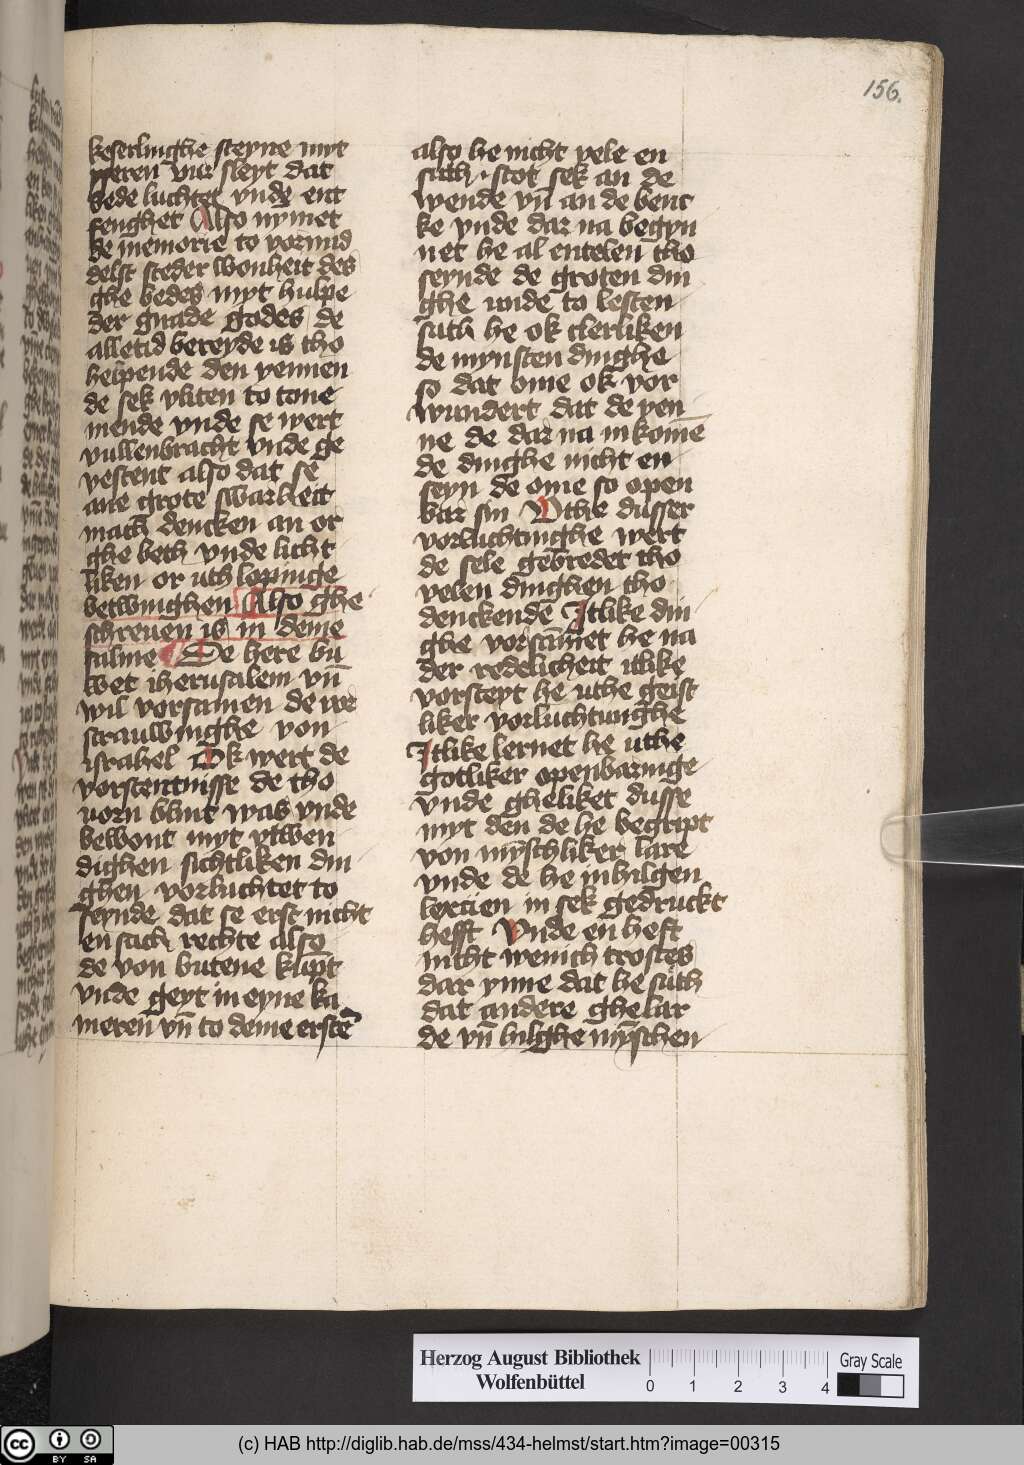 156.
keserlinghe steyne myt
yseren vur sleyt dat
bede luchtet vnde ent
fenghet Also nymet
de memorie to vormid
delst steder wonheit des
ghe bedes myt hulpe
der gnade godes de
alletid bereyde is tho
helpende den yennen
de sek vliten to tone
mende vnde se wert
vullenbracht vnde ge
vestent also dat se
ane grote swarheit
mach dencken an or
ghe beth vnde licht
liken or uth lopinge
betwinghen Also ghe
schreuen is in deme
salme De here bu
wet iherusalem vn̄
wil vorsamen de vor
strauwinghe von
israhel Ok wert de
vorstentnisse de tho
uorn blint was vnde
bewont myt vtwen
dighen sichtliken din
ghen vorluchtet to
seynde dat se erst nicht
en sach rechte also
de von butene kūpt
vnde geyt in eyne ka
meren vn̄ to deme erstē
also he nicht vele en
suth · stot sek an de
wende vn̄ an de benc
ke vnde dar na begyn
net he al entelen tho
seynde de groten din
ghe unde to lesten
suth he ok clerliken
de mynsten dinghe
so dat ome ok vor
wundert dat de yen
ne de dar na in komē
de dinghe nicht en
seyn de ome so open
bar sin Vthe dusser
vorluchtinghe wert
de sele gebredet tho
velen dinghen tho
denckende Itlike din
ghe vorsāmet he na
der redelicheit itlike
vorsteyt he uthe geist
liker vorluchtunghe
Itlike lernet he uthe
gotliker openbaringe
vnde gheliket dusse
myt den de he begript
von mȳschliker lare
vnde de he in hilgen
lexcien in sek gedruckt
hefft Vnde en heft
nicht wenich trostes
dar ynne dat he suth
dat andere ghelar
de vn̄ hilghe mȳschen
Herzog August Bibliothek
Wolfenbüttel
0 1 2 3 4
Gray Scale
cc BY SA
(c) HAB http://diglib.hab.de/mss/434-helmst/start.htm?image=00315